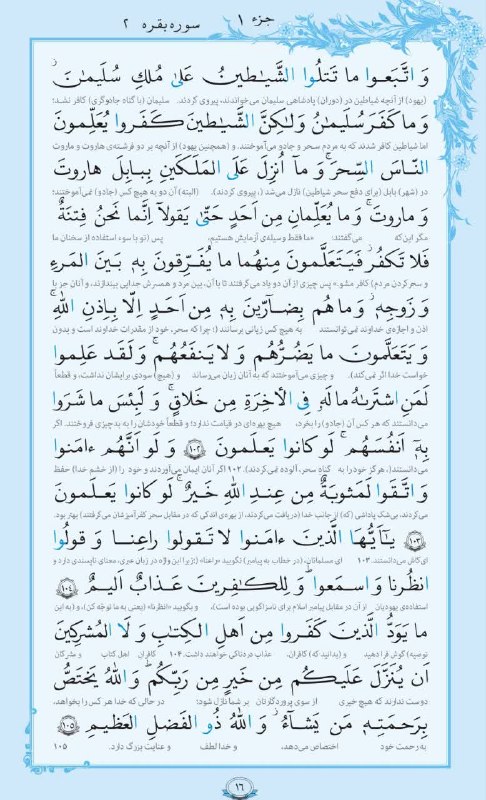 جزء ۱ سوره بقره ۲
وَ اتَّبَعوا ما تَتلُوا الشَّیاطینُ عَلیٰ مُلکِ سُلَیمٰنَ ۖ
(یهود) از آنچه شیاطین در (دوران) پادشاهی سلیمان می‌خواندند، پیروی کردند. سلیمان (با گناه جادوگری) کافر نشد؛
وَ ما کَفَرَ سُلَیمٰنُ وَلٰکِنَّ الشَّیاطینَ کَفَروا یُعَلِّمونَ
اما شیاطین کافر شدند که به مردم سحر و جادو می‌آموختند. و (همچنین یهود) از آنچه بر دو فرشته‌ی هاروت و ماروت
النّاسَ السِّحرَ وَ ما اُنزِلَ عَلَی المَلَکَینِ بِبابِلَ هاروتَ
در (شهر) بابل (برای دفع سحر شیاطین) نازل می‌شد (، پیروی کردند). (البته) آن دو به هیچ کس (جادو) نمی‌آموختند؛
وَ ماروتَ ۚ وَ ما یُعَلِّمانِ مِن اَحَدٍ حَتّیٰ یَقولآ اِنَّما نَحنُ فِتنَةٌ
مگر این‌که می‌گفتند: «ما فقط وسیله‌ی آزمایش هستیم، پس (تو با سوء استفاده از سخنان ما
فَلا تَکفُر ۖ فَیَتَعَلَّمونَ مِنهُما ما یُفَرِّقونَ بِهِ بَینَ المَرءِ
و سحر کردن مردم) کافر مشو.» پس چیزی از آن دو یاد می‌گرفتند تا با آن، بین مرد و همسرش جدایی بیندازند، و آنان جز با
وَ زَوجِهِ ۚ وَ ما هُم بِضآرّینَ بِهِ مِن اَحَدٍ اِلّا بِاِذنِ اللّٰهِ ۚ
اذن و اجازه‌ی خداوند نمی‌توانستند به هیچ کس زیانی برسانند (؛ چرا که سحر، خود از مقدرات خداوند است و بدون
وَ یَتَعَلَّمونَ ما یَضُرُّهُم وَ لا یَنفَعُهُم ۚ وَ لَقَد عَلِموا
خواست خدا اثر نمی‌کند). و چیزی می‌آموختند که به آنان زیان می‌رساند و (هیچ) سودی برایشان نداشت، و قطعاً
لَمَنِ اشتَرٰىهُ ما لَهُ فِی الأخِرَةِ مِن خَلاقٍ ۚ وَ لَبِئسَ ما شَرَوا
می‌دانستند که هر کس آن (جادو) را بخرد، هیچ بهره‌ای در قیامت ندارد؛ و قطعاً خودشان را به بد چیزی فروختند. اگر
بِهِ اَنفُسَهُم ۚ لَو کانوا یَعلَمونَ ﴿۱۰۲﴾ وَ لَو اَنَّهُم ءامَنوا
می‌دانستند(، هرگز خود را به گناه سحر، آلوده نمی‌کردند). ۱۰۲ اگر آنان ایمان می‌آوردند و خود را (از خشم خدا) حفظ
وَ اتَّقَوا لَمَثوبَةٌ مِن عِندِ اللّٰهِ خَیرٌ ۖ لَو کانوا یَعلَمونَ
می‌کردند، بی‌شک پاداشی (که) از جانب خدا (دریافت می‌کردند، از بهره‌ی اندکی که در مقابل سحر کفرآمیزشان می‌گرفتند) بهتر بود.
﴿۱۰۳﴾ یٰٓاَیُّهَا الَّذینَ ءامَنوا لا تَقولوا راعِنا وَ قولُوا
ای کاش می‌دانستند. ۱۰۳ ای مسلمانان، (در خطاب به پیامبر) نگویید «راعنا» (؛ زیرا این واژه در زبان عبری، معنای ناپسندی دارد و
انظُرنا وَ اسمَعوا ۗ وَ لِلکٰفِرینَ عَذابٌ اَلیمٌ ﴿۱۰۴﴾
استفاده‌ی یهودیان از آن در مقابل پیامبر اسلام برای ناسزاگویی بوده است)، و بگویید «انظرنا» (یعنی به ما توجّه کن)، و (به این
ما یَوَدُّ الَّذینَ کَفَروا مِن اَهلِ الکِتٰبِ وَ لَا المُشرِکینَ
توصیه) گوش فرا دهید و (بدانید که) کافران، عذاب دردناکی خواهند داشت. ۱۰۴ کافران اهل کتاب و مشرکان
اَن یُنَزَّلَ عَلَیکُم مِن خَیرٍ مِن رَبِّکُم ۗ وَ اللّٰهُ یَختَصُّ
دوست ندارند که هیچ خیری از سوی پروردگارتان بر شما نازل شود؛ در حالی که خدا هر کس را بخواهد،
بِرَحمَتِهِ مَن یَشآءُ ۚ وَ اللّٰهُ ذُو الفَضلِ العَظیمِ ﴿۱۰۵﴾
به رحمت خود اختصاص می‌دهد، و خدا لطف و عنایت بزرگ دارد. ۱۰۵
۱۶